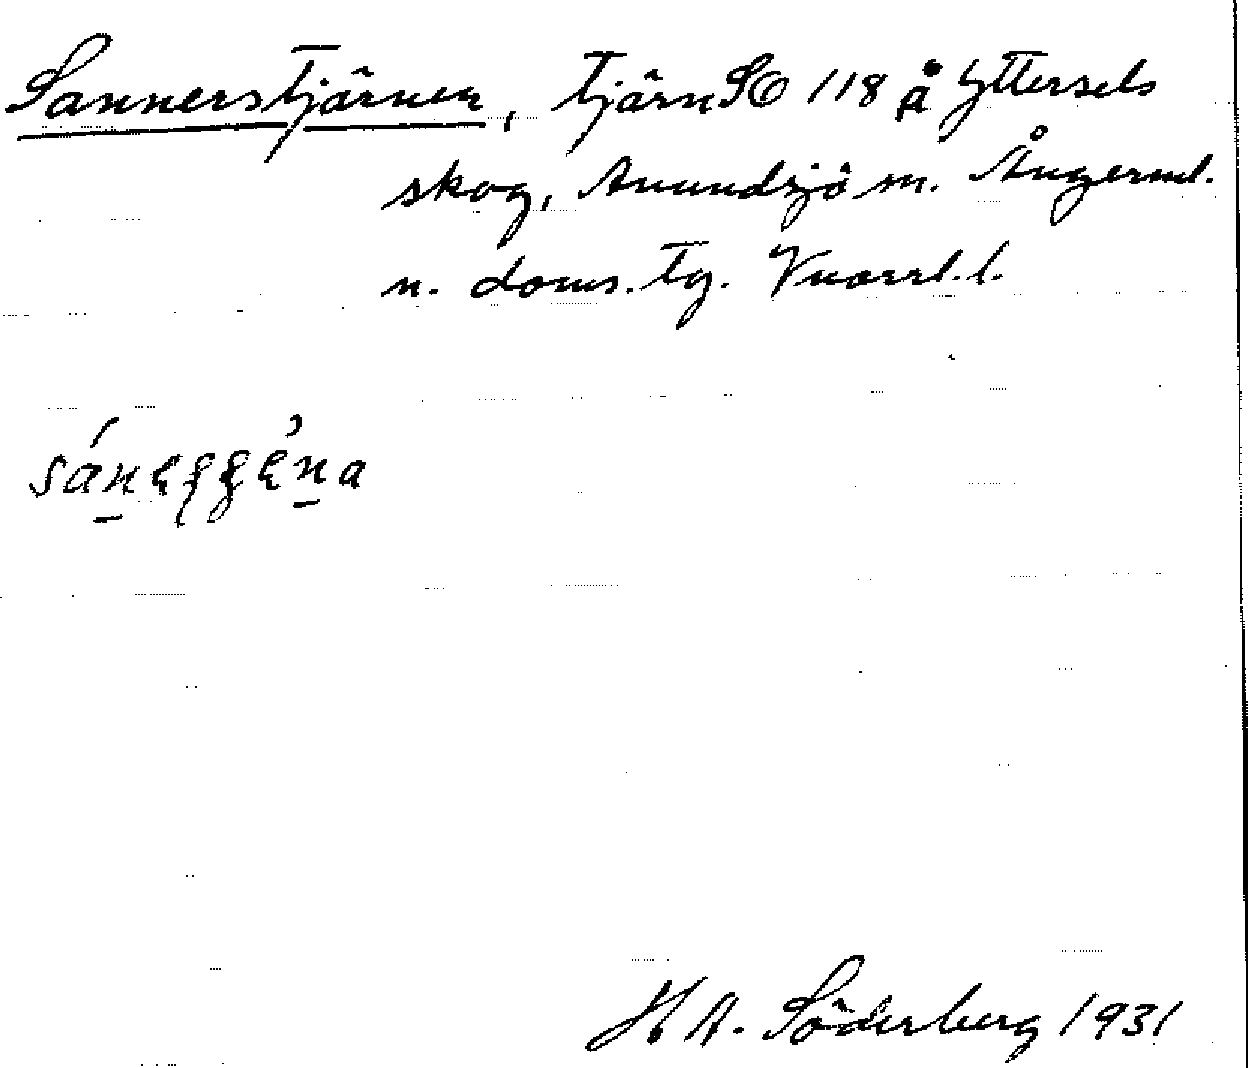 Sannerstjärnen, tjärn SO 118 å Yttersels
skog, Anundsjö sn. Ångerml.
n. doms. tg. Vuorrl. l.
H A. Söderberg 1931